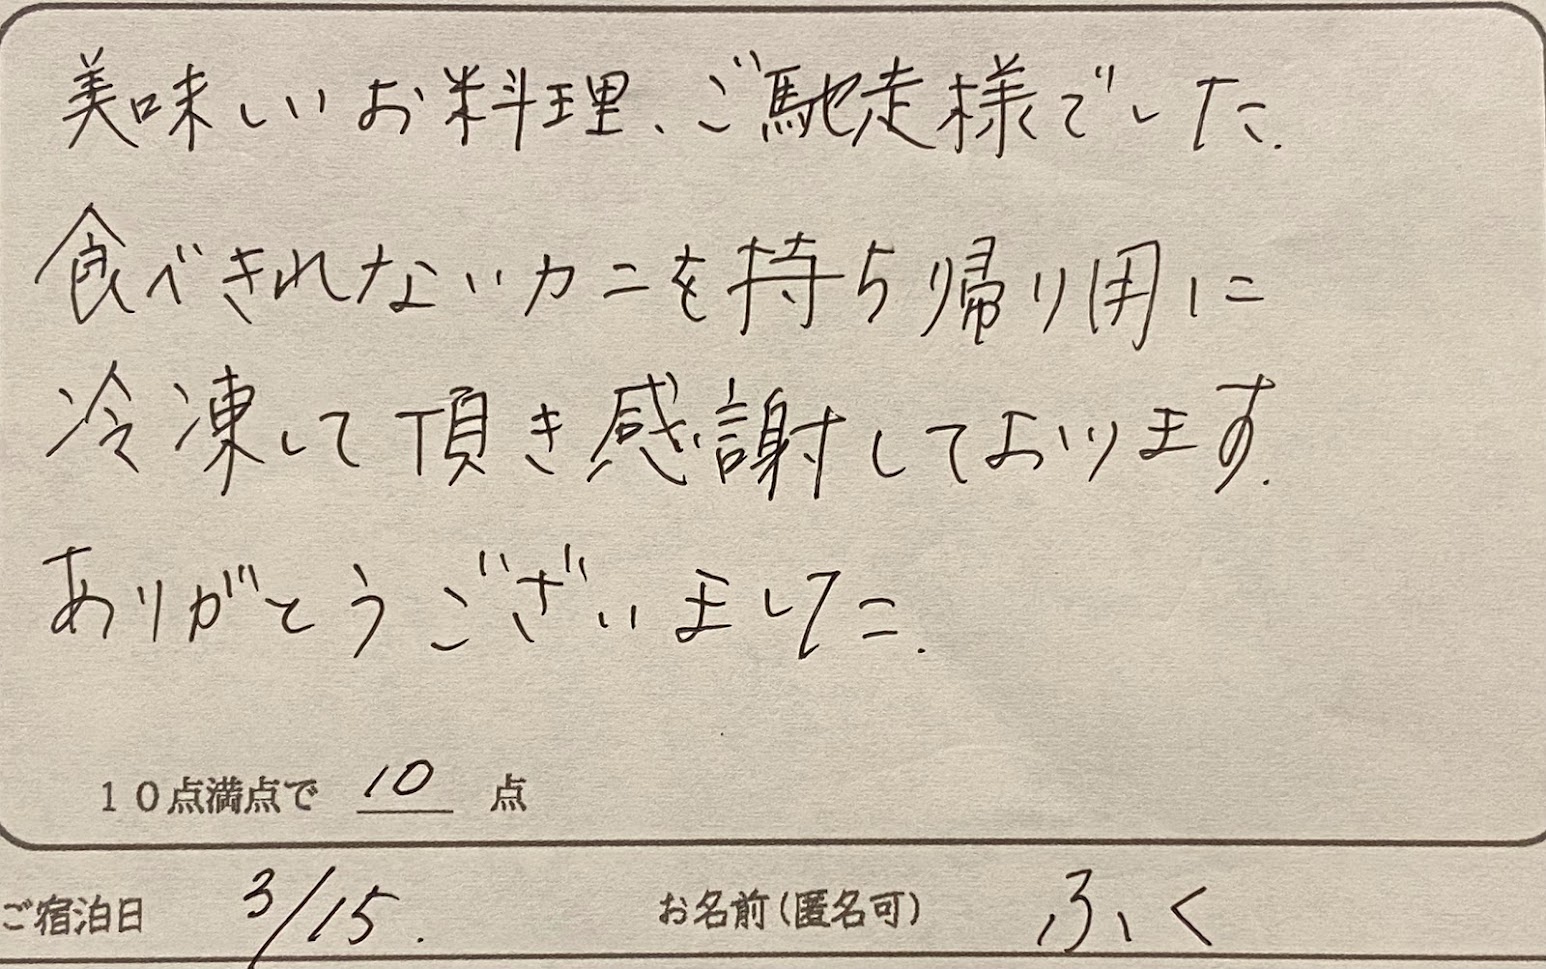 美味しいお料理、ご馳走様でした.
食べきれないカニを持ち帰り用に
冷凍して頂き感謝しております.
ありがとうございました.
10点満点で 10 点
ご宿泊日 3/15. お名前(匿名可) ふく